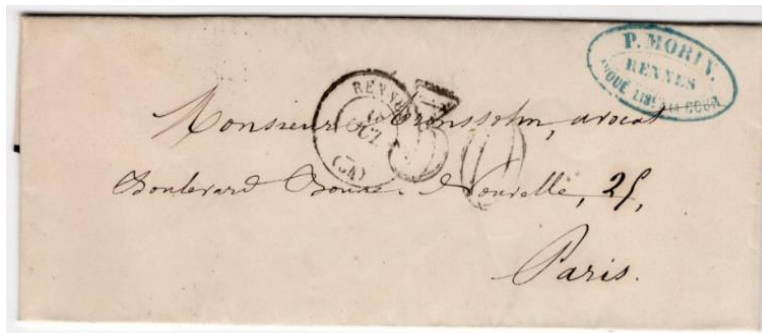 P. MORIN.
RENNES
AVOUÉ LIB. À LA COUR
RENNES
OCT.
(34)
30
Monsieur avocat
Boulevard Bonne-Nouvelle, 25,
Paris.